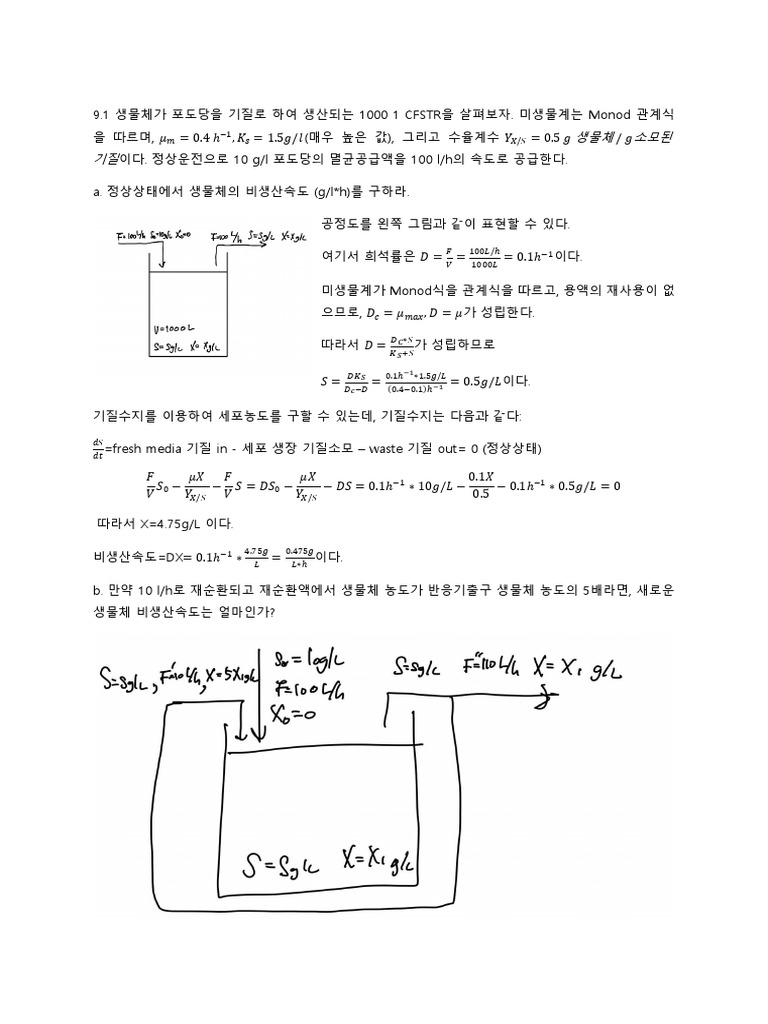 9.1 생물체가 포도당을 기질로 하여 생산되는 1000 1 CFSTR을 살펴보자. 미생물계는 Monod 관계식
을 따르며, μₘ = 0.4 h⁻¹, Kₛ = 1.5g/l(매우 높은 값), 그리고 수율계수 Y_{X/S} = 0.5 g 생물체/ g소모된
기질이다. 정상운전으로 10 g/l 포도당의 멸균공급액을 100 l/h의 속도로 공급한다.
a. 정상상태에서 생물체의 비생산속도 (g/l*h)를 구하라.
F=100L/h S₀=10g/L X₀=0
F=100L/h S=Sg/L X=Xg/L
V=1000L
S=Sg/L X=Xg/L
공정도를 왼쪽 그림과 같이 표현할 수 있다.
여기서 희석률은 D = F/V = 100L/h / 1000L = 0.1h⁻¹이다.
미생물계가 Monod식을 관계식을 따르고, 용액의 재사용이 없
으므로, D_c = μ_{max}, D = μ가 성립한다.
따라서 D = D_C*S / K_S+S가 성립하므로
S = DK_S / D_C−D = 0.1h⁻¹*1.5g/L / (0.4−0.1)h⁻¹ = 0.5g/L이다.
기질수지를 이용하여 세포농도를 구할 수 있는데, 기질수지는 다음과 같다:
dS/dt=fresh media 기질 in - 세포 생장 기질소모 – waste 기질 out= 0 (정상상태)
F/V S₀ − μX/Y_{X/S} − F/V S = DS₀ − μX/Y_{X/S} − DS = 0.1h⁻¹ * 10g/L − 0.1X/0.5 − 0.1h⁻¹ * 0.5g/L = 0
따라서 X=4.75g/L 이다.
비생산속도=DX= 0.1h⁻¹ * 4.75g/L = 0.475g/L*h이다.
b. 만약 10 l/h로 재순환되고 재순환액에서 생물체 농도가 반응기출구 생물체 농도의 5배라면, 새로운
생물체 비생산속도는 얼마인가?
S=Sg/L, F'=10L/h, X=5X₁g/L
S₀=10g/L
F=100L/h
X₀=0
S=Sg/L F''=110L/h X=X₁ g/L
S=Sg/L X=X₁ g/L